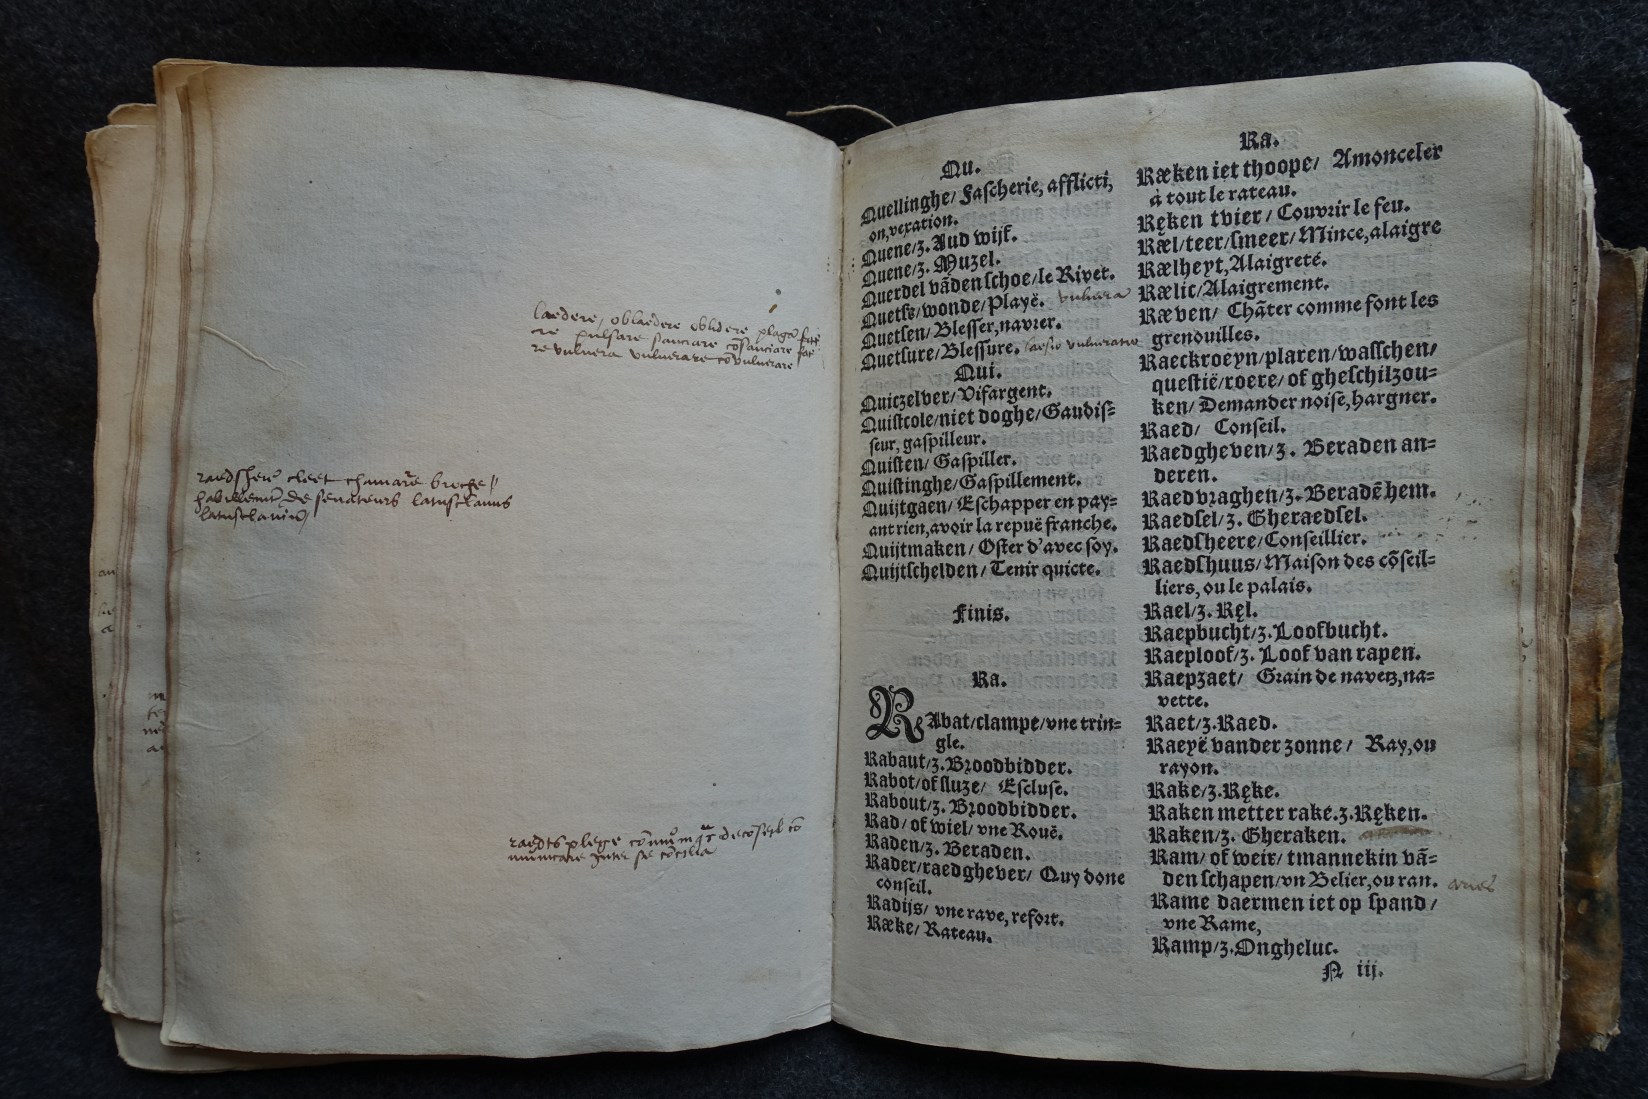 laedere, oblaedere oblidere plagā
re pulsare sauciare cōsauciare
re vulnera vulnerare cōvulnerare
cleet chamarre
de senateurs latusclavus
latusclavius
raedts plege
municare inter se cōcilia
Qu.
Quellinghe/ Fascherie, afflicti,
on, vexation.
Quene/z. Aud wijf.
Quene/z. Muzel.
Querdel vādenschoe/le Rivet.
Quets/wonde/Playë. vulnera
Quetsen/Blesser,navrer.
Quetsure/Blessure. laesio vulneratio
Qui.
Quiczelver/Vifargent.
Quistcole/niet doghe/Gaudis=
seur, gaspilleur.
Quisten/ Gaspiller.
Quistinghe/Gaspillement.
Quijtgaen/Eschapper en pay=
ant rien, avoir la repuë franche.
Quijtmaken/ Oster d'avec soy.
Quijtschelden/Tenir quicte.
Finis.
Ra.
RAbat/clampe/vne trin=
gle.
Rabaut/z. Broodbidder.
Rabot/of sluze/ Escluse.
Rabout/z. Broodbidder.
Rad/ of wiel/ vne Rouë.
Raden/z. Beraden.
Rader/raedghever/ Quy done
conseil.
Radijs/ vne rave, refort.
Ræke/ Rateau.
Ra.
Ræken iet thoope/ Amonceler
à tout le rateau.
Ręken tvier/ Couvrir le feu.
Ræl/teer/smeer/Mince,alaigre
Rælheyt,Alaigreté.
Rælic/Alaigrement.
Ræven/ Chāter comme font les
grenouilles.
Raeckroeyn/plaren/wasschen/
questië/roere/of gheschilzou=
ken/ Demander noise,hargner.
Raed/ Conseil.
Raedgheven/z. Beraden an=
deren.
Raedvraghen/z. Beradē hem.
Raedsel/z. Gheraedsel.
Raedsheere/Conseillier.
Raedshuus/Maison des cōseil=
liers, ou le palais.
Rael/z. Ręl.
Raepbucht/z. Loofbucht.
Raeploof/z. Loof van rapen.
Raepzaet/ Grain de navetz,na=
vette.
Raet/z. Raed.
Raeyë vander zonne/ Ray,ou
rayon.
Rake/z. Ręke.
Raken metter rake.z. Ręken.
Raken/z. Gheraken.
Ram/ of weir/ tmannekin vā=
den schapen/vn Belier,ou ran. aries
Rame daermen iet op spand/
vne Rame,
Ramp/z. Ongheluc.
N iij.